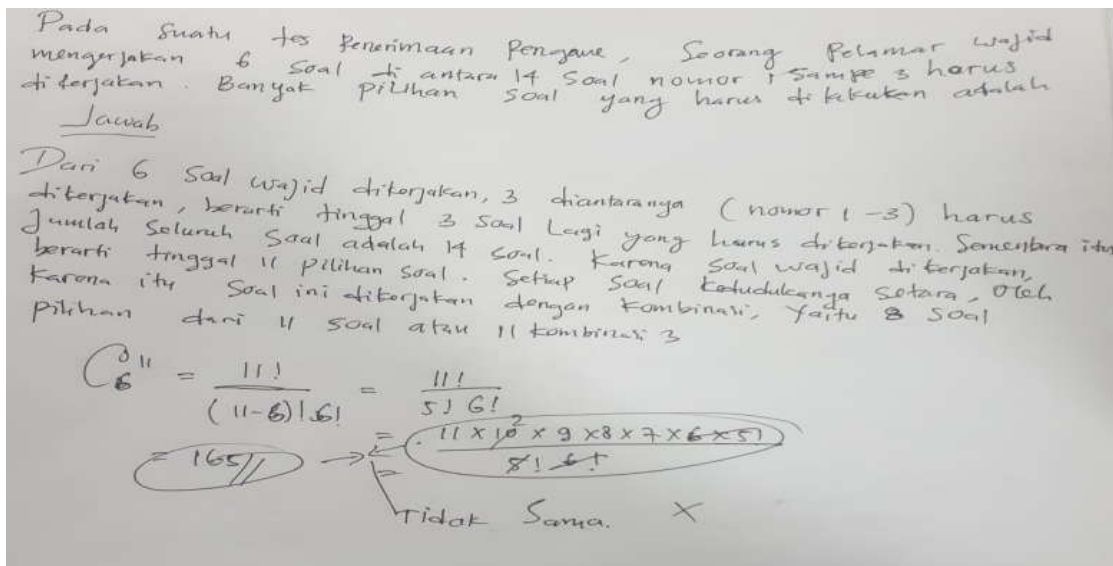 Pada suatu tes Penerimaan Pengawe, Seorang Pelamar wajid
mengerjakan 6 Soal di antara 14 Soal nomor 1 sampe 3 harus
diterjakan. Banyak pilihan soal yang harus dilakukan adalah
Jawab
Dari 6 Soal wajid dikerjakan, 3 diantaranya (nomor 1-3) harus
dikerjakan, berarti tinggal 3 Soal Lagi yang harus dikerjakan. Sementara itu
Jumlah Seluruh Soal adalah 14 Soal. Karena Soal wajid dikerjakan,
berarti tinggal 11 pilihan Soal. Setiap Soal Kedudukanga Setara, Oleh
Karena itu Soal ini dikerjakan dengan Kombinasi, Yaitu 3 Soal
Pilihan dari 11 Soal atau 11 kombinasi 3
C 11 6 = 11! / (11-6)! 6! = 11! / 5! 6!
= 11 x 10 2 x 9 x 8 x 7 x 6 x 5! / 5! 6!
= 165 // → =
Tidak Sama. X